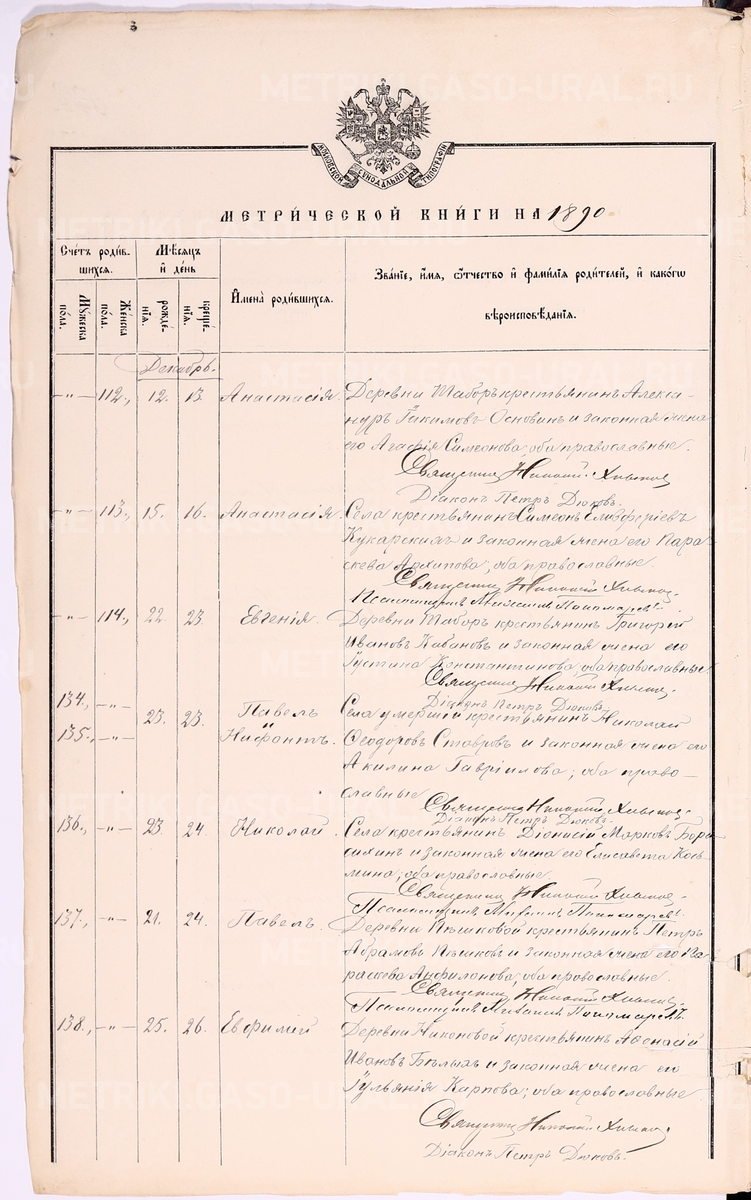 METRIKI.GASO-URAL.RU
МОСКОВСКОЙ СУНОДАЛЬНОЙ ТИПОГРАФІИ
МЕТРИ́ЧЕСКОЙ КНИ́ГИ НА 1890
Сче́тъ роди́в-
шихся.
Мꙋ́жеска
по́ла.
Же́нска
по́ла.
Мѣ́сяцъ
и҆ де́нь
рожде́-
нїя.
креще́-
нїя.
И҆мена̀ роди́вшихся.
Зва́нїе, и҆́мя, ѻ҆́тчество и҆ фами́лїя роди́телей, и҆ како́гѡ
вѣроисповѣ́данїя.
Декабрь.
-"- 112., 12. 13. Анастасія. Деревни Таборъ крестьянинъ Алекса-
ндръ Основинъ и законная жена
его Агафія Симеонова; оба православные.
Священникъ Николай
Діаконъ Петръ Дюковъ.
-"- 113., 15. 16. Анастасія. Села крестьянинъ Симеонъ Елевферіевъ
Кукарскихъ и законная жена его Пара-
скева Архипова; оба православные.
Священникъ Николай
Псаломщикъ Пономаревъ.
-"- 114., 22. 23. Евгенія. Деревни Таборъ крестьянинъ Григорій
Ивановъ Кабановъ и законная жена его
Іустина Константинова; оба православные.
Священникъ Николай
Діаконъ Петръ Дюковъ.
134., -"- 23. 23. Павелъ Села умершій крестьянинъ Николай
и
135., -"- Нифонтъ. Ѳеодоровъ Ставровъ и законная жена его
Акилина Гавріилова; оба право-
славные.
Священникъ Николай
Діаконъ Петръ Дюковъ.
136., -"- 23. 24. Николай. Села крестьянинъ Діонисій Марковъ
и законная жена его Елисавета Кось-
мина; оба православные.
Священникъ Николай
Псаломщикъ Пономаревъ.
137., -"- 21. 24. Павелъ. Деревни Пѣшковой крестьянинъ Петръ
Абрамовъ Пѣшковъ и законная жена его Па-
раскева Анфилофова; оба православные.
Священникъ Николай
Псаломщикъ Пономаревъ.
138., -"- 25. 26. Евфимій Деревни Никоновой крестьянинъ Аѳанасій
Ивановъ Бѣлыхъ и законная жена его
Іульянія Карпова; оба православные.
Священникъ Николай
Діаконъ Петръ Дюковъ.